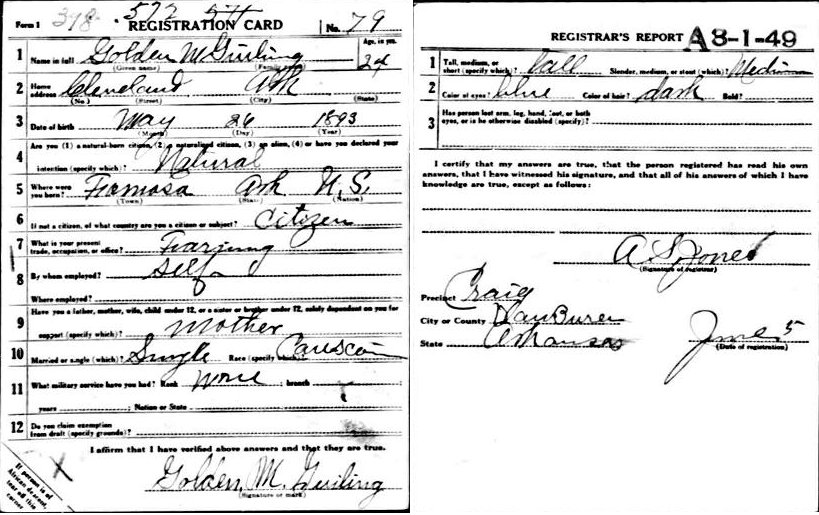 Form 1 398 .572 571 REGISTRATION CARD No. 79
1 Name in full Golden M Guiling Age, in yrs. 24
(Given name) (Family name)
2 Home address Cleveland Ark
(No.) (Street) (City) (State)
3 Date of birth May 26 1893
(Month) (Day) (Year)
Are you (1) a natural-born citizen, (2) a naturalized citizen, (3) an alien, (4) or have you declared your
4 intention (specify which)? Natural
5 Where were you born? Formosa Ark U.S.
(Town) (State) (Nation)
6 If not a citizen, of what country are you a citizen or subject? Citizen
7 What is your present trade, occupation, or office? Farming
8 By whom employed? Self
Where employed?
Have you a father, mother, wife, child under 12, or a sister or brother under 12, solely dependent on you for
9 support (specify which)? Mother
10 Married or single (which)? Single Race (specify which)?
11 What military service have you had? Rank None ; branch
years ; Nation or State
12 Do you claim exemption from draft (specify grounds)?
I affirm that I have verified above answers and that they are true.
X
If person is of African descent, tear off this corner
Golden M. Guiling
(Signature or mark)
REGISTRAR'S REPORT A 3-1-49
1 Tall, medium, or short (specify which)? tall Slender, medium, or stout (which)? Medium
2 Color of eyes? blue Color of hair? dark Bald?
3 Has person lost arm, leg, hand, foot, or both eyes, or is he otherwise disabled (specify)?
I certify that my answers are true, that the person registered has read his own
answers, that I have witnessed his signature, and that all of his answers of which I have
knowledge are true, except as follows:
A. S. Jones
(Signature of registrar)
Precinct Craig
City or County Van Buren
State Arkansas June 5
(Date of registration)